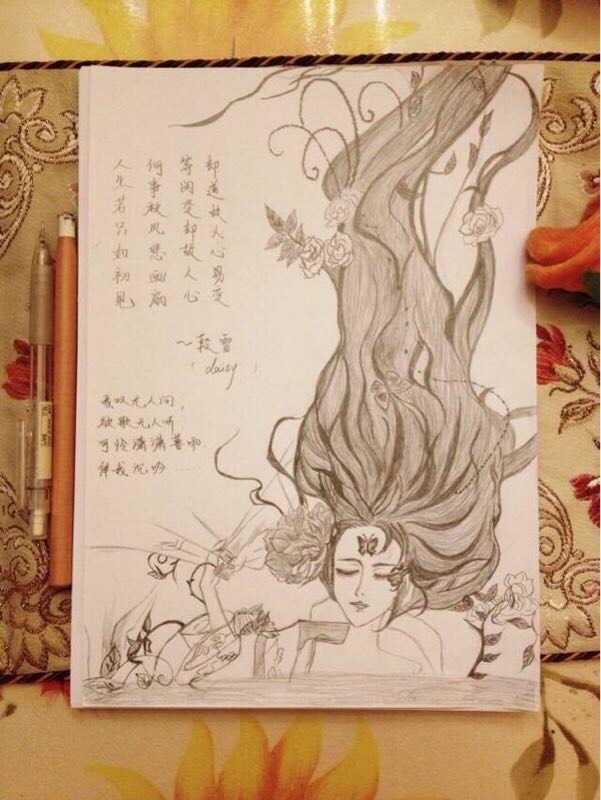 人生若只如初见
何事秋风悲画扇
等闲变却故人心
却道故人心易变
~ 雪
(daisy)
叹无人问,
欲歌无人听
可怪潇潇暮雨.
伴我沉吟....